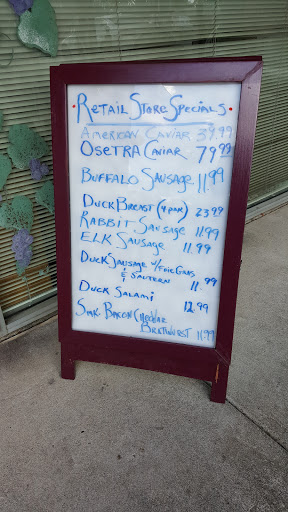 Retail Store Specials
American Caviar 39.99
Osetra Caviar 79.99
Buffalo Sausage 11.99
Duck Breast (4 pak) 23.99
Rabbit Sausage 11.99
Elk Sausage 11.99
Duck Sausage w/ Foie Gras
& Sautern 11.99
Duck Salami 12.99
Smk. Bacon Cheddar
Bratwurst 11.99